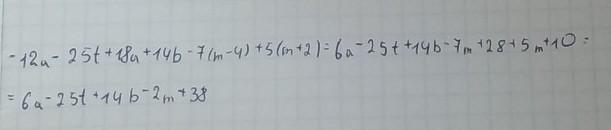 -12a-25t+18a+14b-7(m-4)+5(m+2)=6a-25t+14b-7m+28+5m+10=
=6a-25t+14b-2m+38